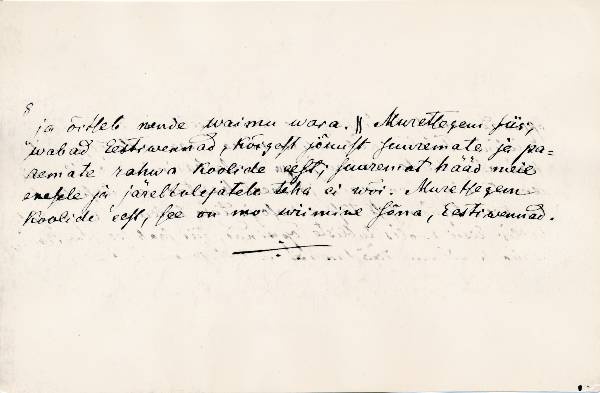 ja õitseb nende waimu wara. || Muretsegem siis,
wabad Eestiwennad, kõigest jõuust suuremate ja pa-
remate rahwa koolide eest, suuremat hääd meie
enesele ja järeltulejatele teha ei wõi. Muretsegem
koolide eest, see on mo wiimine sõna, Eestiwennad.